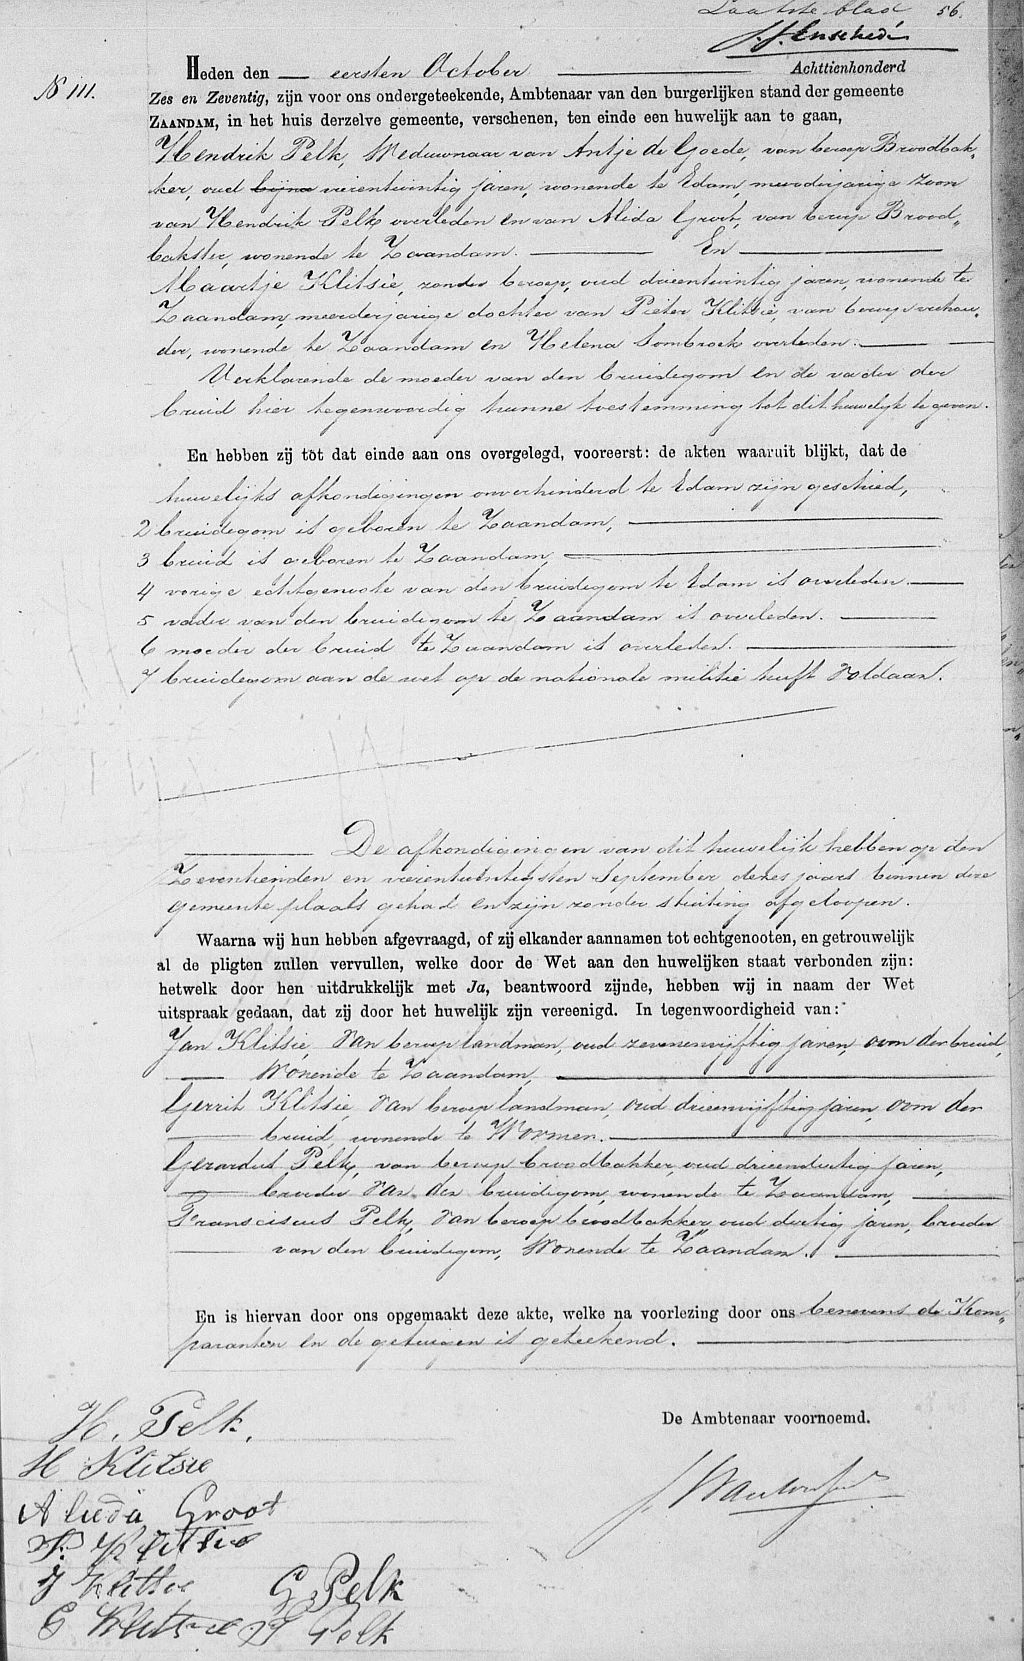 Laatste blad 56.
J.J. Enschedé
N° 111.
Heden den — eersten October — Achttienhonderd
Zes en Zeventig, zijn voor ons ondergeteekende, Ambtenaar van den burgerlijken stand der gemeente
ZAANDAM, in het huis derzelve gemeente, verschenen, ten einde een huwelijk aan te gaan,
Hendrik Pelk, Weduwnaar van Antje de Goede, van beroep Broodbak„
ker, oud bijna vierentwintig jaren, wonende te Edam, meerderjarige zoon
van Hendrik Pelk overleden en van Alida Groot, van beroep Brood„
bakster, wonende te Zaandam. — En —
Maartje Klitsie, zonder beroep, oud drieentwintig jaren, wonende te
Zaandam, meerderjarige dochter van Pieter Klitsie, van beroep veehou„
der, wonende te Zaandam en Helena Sombroek overleden. —
Verklarende de moeder van den bruidegom en de vader der
bruid hier tegenwoordig hunne toestemming tot dit huwelijk te geven.
En hebben zij tot dat einde aan ons overgelegd, vooreerst: de akten waaruit blijkt, dat de
huwelijks afkondigingen onverhinderd te Edam zijn geschied,
2 bruidegom is geboren te Zaandam, —
3 bruid is geboren te Zaandam, —
4 vorige echtgenoote van den bruidegom te Edam is overleden. —
5 vader van den bruidegom te Zaandam is overleden. —
6 moeder der bruid te Zaandam is overleden. —
7 bruidegom aan de wet op de nationale militie heeft voldaan.
— De afkondigingen van dit huwelijk hebben op den
Zeventienden en vierentwintigsten September dezes jaars binnen deze
gemeente plaats gehad en zijn zonder stuiting afgeloopen.
Waarna wij hun hebben afgevraagd, of zij elkander aannamen tot echtgenooten, en getrouwelijk
al de pligten zullen vervullen, welke door de Wet aan den huwelijken staat verbonden zijn:
hetwelk door hen uitdrukkelijk met Ja, beantwoord zijnde, hebben wij in naam der Wet
uitspraak gedaan, dat zij door het huwelijk zijn vereenigd. In tegenwoordigheid van:
Jan Klitsie, van beroep landman, oud zevenenvijftig jaren, oom der bruid,
— Wonende te Zaandam, —
Gerrit Klitsie, van beroep landman, oud drieenvijftig jaren, oom der
— bruid, wonende te Wormer. —
Gerardus Pelk, van beroep broodbakker, oud drieendertig jaren,
— broeder van den bruidigom, wonende te Zaandam, —
Fransciscus Pelk, van beroep broodbakker, oud dertig jaren, broeder
— van den bruidegom, Wonende te Zaandam. —
En is hiervan door ons opgemaakt deze akte, welke na voorlezing door ons benevens de Kom„
paranten en de getuigen is geteekend. —
De Ambtenaar voornoemd.
H. Pelk.
M Klitsie
Alieda Groot
P. Klitsie
J Klitsie G. Pelk
G Klitsie F Pelk